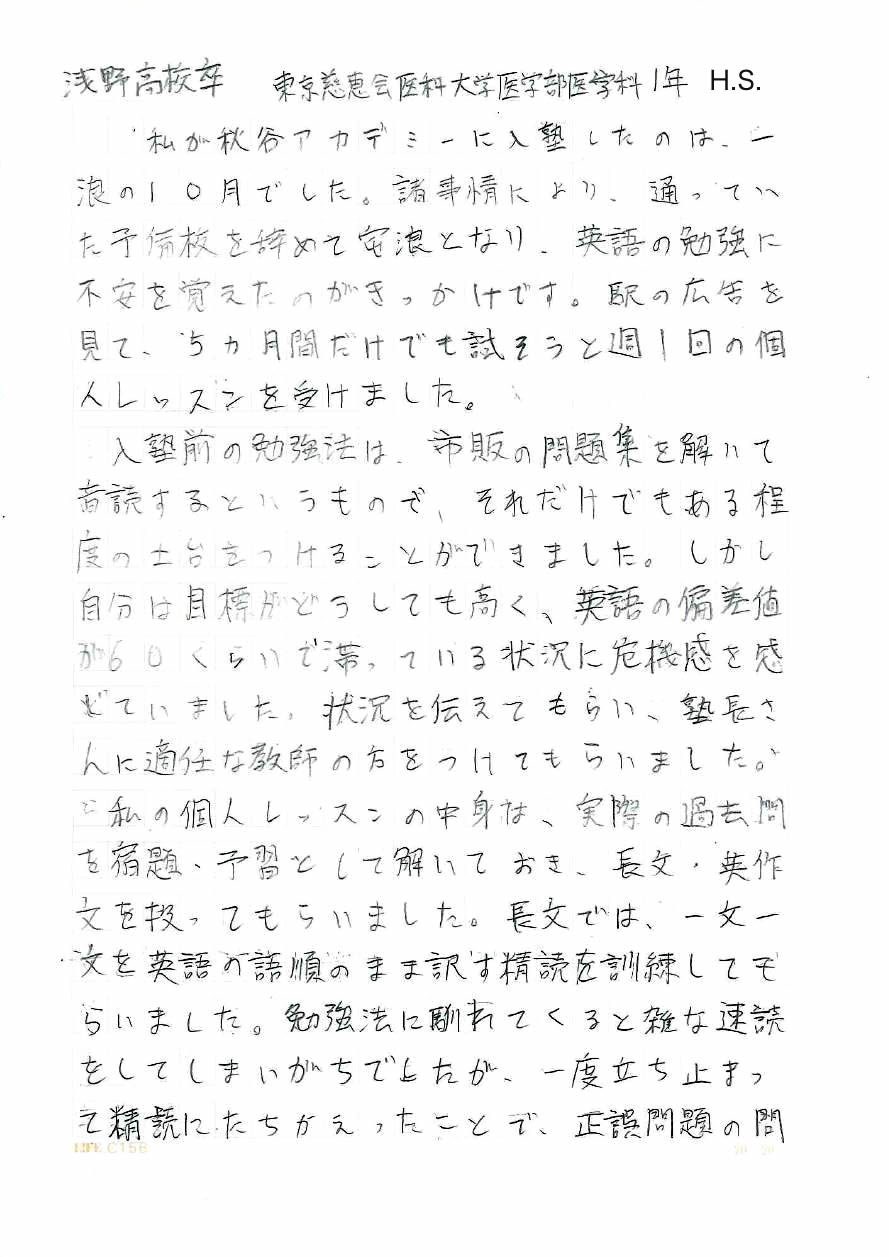 浅野高校卒 東京慈恵会医科大学医学部医学科1年 H.S.
私が秋谷アカデミーに入塾したのは、一
浪の10月でした。諸事情により、通ってい
た予備校を辞めて宅浪となり、英語の勉強に
不安を覚えたのがきっかけです。駅の広告を
見て、5ヵ月間だけでも試そうと週1回の個
人レッスンを受けました。
入塾前の勉強法は、市販の問題集を解いて
音読するというもので、それだけでもある程
度の土台をつけることができました。しかし
自分は目標がどうしても高く、英語の偏差値
が60くらいで滞っている状況に危機感を感
じていました。状況を伝えてもらい、塾長さ
んに適任な教師の方をつけてもらいました。
私の個人レッスンの中身は、実際の過去問
を宿題、予習として解いておき、長文・英作
文を扱ってもらいました。長文では、一文一
文を英語の語順のまま訳す精読を訓練しても
らいました。勉強法に馴れてくると雑な速読
をしてしまいがちでしたが、一度立ち止まっ
て精読にたちかえったことで、正誤問題の問
LIFE C156
20 20